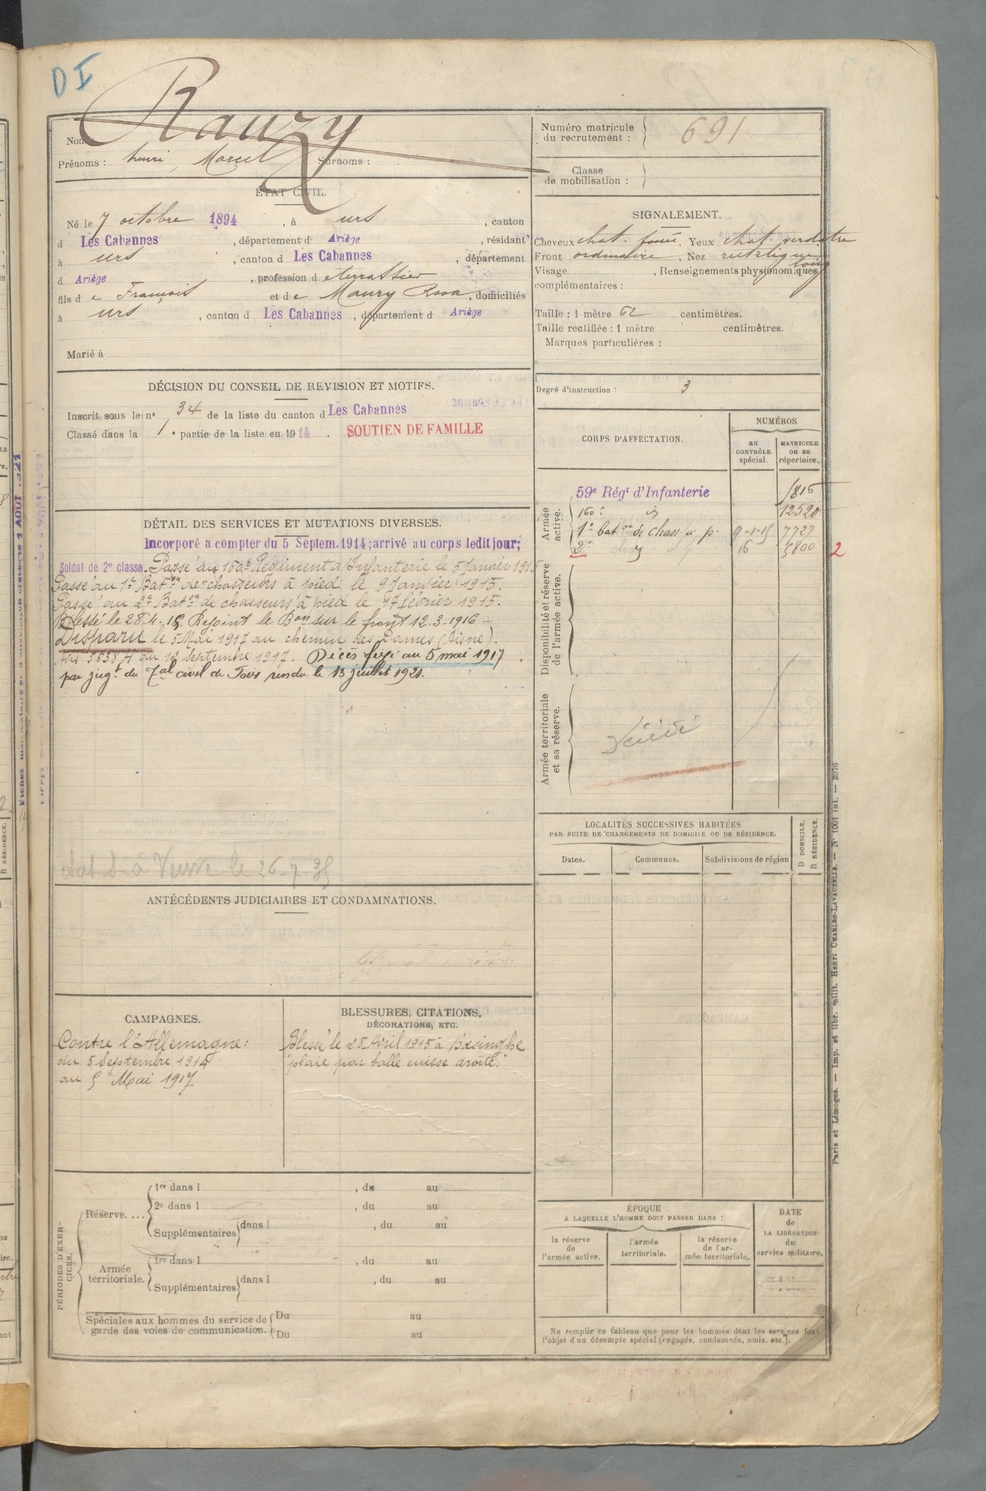 D I
Nom : Rauzy
Prénoms : Henri Marcel Surnoms :
ÉTAT CIVIL.
Né le 7 octobre 1894, à urs, canton
d Les Cabannes, département d Ariège, résidant
à urs, canton d Les Cabannes, département
d Ariège, profession d
fils de François et de Maury Rosa, domiciliés
à urs, canton d Les Cabannes, département d Ariège
Marié à
DÉCISION DU CONSEIL DE REVISION ET MOTIFS.
Inscrit sous le nº 34 de la liste du canton d Les Cabannes
Classé dans la 1e partie de la liste en 1914. SOUTIEN DE FAMILLE
DÉTAIL DES SERVICES ET MUTATIONS DIVERSES.
Incorporé à compter du 5 Septem. 1914; arrivé au corps ledit jour;
Soldat de 2e classe. Passé au 160e Régiment d'Infanterie le 5 Janvier 191
Passé au 1er Baton de chasseurs à pied le 9 Janvier 1915.
Passé au 2e Baton de chasseurs à pied le 17 février 1915.
Blessé le 28-4-15 Rejoint le Bon sur le front 12-3-1916 -
Disparu le 5 Mai 1917 au chemin des Dames (Aisne).
du 12 Septembre 1917. Décès fixé au 5 mai 1917
par jugt du Tal civil de rendu le 13 juillet 1921.
le 26-7-35
ANTÉCÉDENTS JUDICIAIRES ET CONDAMNATIONS.
CAMPAGNES.
Contre l'Allemagne:
du 5 Septembre 1914
au 5 Mai 1917
BLESSURES, CITATIONS,
DÉCORATIONS, ETC.
Blessé le 28 Avril 1915 à
"plaie par balle cuisse droite."
PÉRIODES D'EXER-
CICES.
Réserve....
1re dans l , du au
2e dans l , du au
Supplémentaires dans l , du au
Armée
territoriale.
1re dans l , du au
Supplémentaires dans l , du au
Spéciales aux hommes du service de
garde des voies de communication.
Du au
Du au
Numéro matricule
du recrutement : 691
Classe
de mobilisation :
SIGNALEMENT.
Cheveux chat. foncé, Yeux chat. verdâtre
Front ordinaire, Nez rectiligne
Visage long, Renseignements physionomiques
complémentaires :
Taille : 1 mètre 62 centimètres.
Taille rectifiée : 1 mètre centimètres.
Marques particulières :
Degré d'instruction : 3
CORPS D'AFFECTATION.
NUMÉROS
AU
CONTRÔLE
spécial.
MATRICULE
OU AU
répertoire.
Armée
active.
59e Régt d'Infanterie
160e 12520
1er baton de chas. à p. 9-1-15 7727
2e 16 5800 2
Disponibilité et réserve
de l'armée active.
Armée territoriale
et sa réserve.
Décédé
LOCALITÉS SUCCESSIVES HABITÉES
PAR SUITE DE CHANGEMENTS DE DOMICILE OU DE RÉSIDENCE.
D DOMICILE.
R RÉSIDENCE.
Dates. Communes. Subdivisions de région
ÉPOQUE
A LAQUELLE L'HOMME DOIT PASSER DANS :
la réserve
de
l'armée active.
l'armée
territoriale.
la réserve
de l'ar-
mée territoriale.
DATE
de
LA LIBÉRATION
du
service militaire.
Ne remplir ce tableau que pour les hommes dont les services font
l'objet d'un décompte spécial (engagés, condamnés, omis, etc.).
Paris et Limoges. — Imp. et libr. milit. Henri CHARLES-LAVAUZELLE. — Nº 1001 int. — 2076